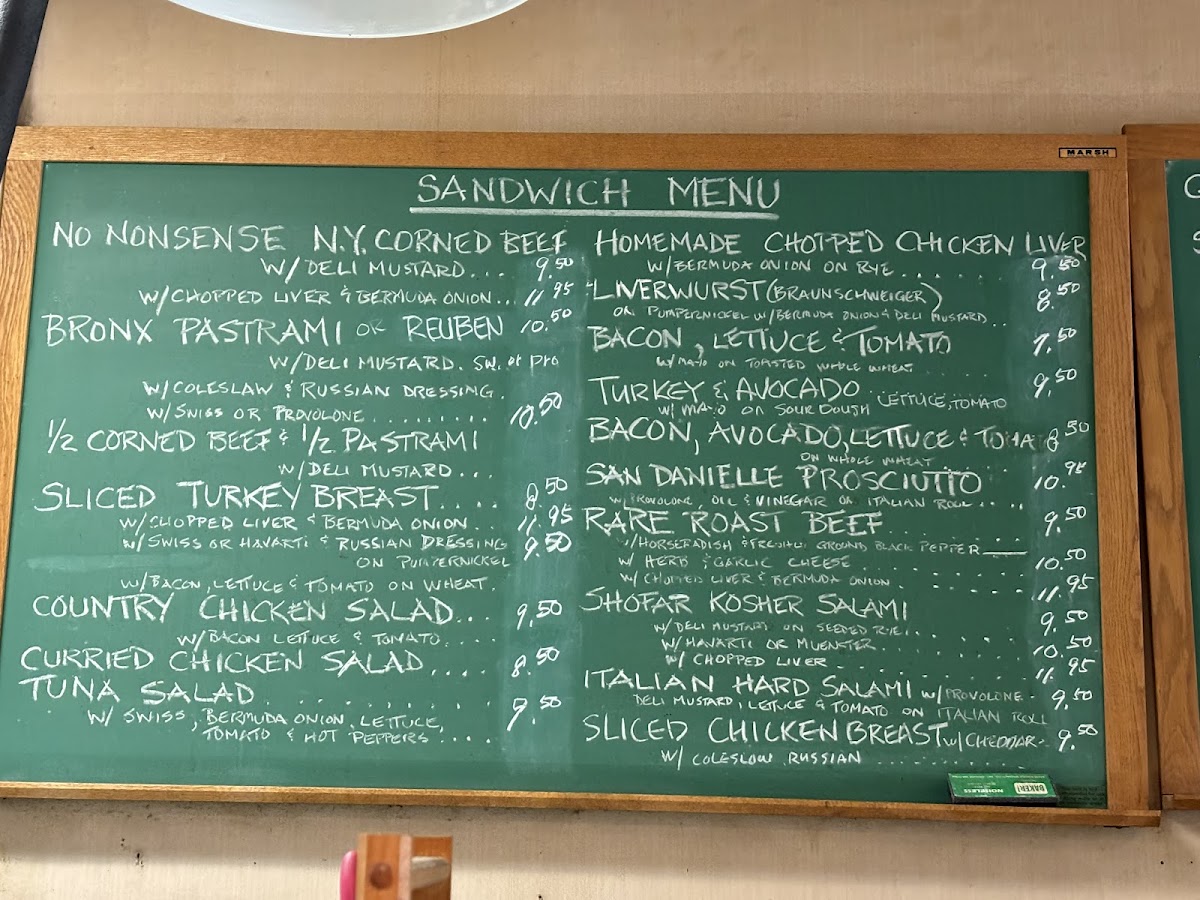 MARSH
SANDWICH MENU
NO NONSENSE N.Y. CORNED BEEF
W/DELI MUSTARD... 9.50
W/CHOPPED LIVER & BERMUDA ONION... 11.95
BRONX PASTRAMI OR REUBEN 10.50
W/DELI MUSTARD. SW. or Pro
W/COLESLAW & RUSSIAN DRESSING.
W/SWISS OR PROVOLONE......... 10.50
1/2 CORNED BEEF & 1/2 PASTRAMI
W/DELI MUSTARD...
SLICED TURKEY BREAST.... 8.50
W/CHOPPED LIVER & BERMUDA ONION.. 11.95
W/SWISS OR HAVARTI & RUSSIAN DRESSING 9.50
ON PUMPERNICKEL
W/BACON, LETTUCE & TOMATO ON WHEAT.
COUNTRY CHICKEN SALAD... 9.50
W/BACON LETTUCE & TOMATO....
CURRIED CHICKEN SALAD.... 8.50
TUNA SALAD .........
W/ SWISS, BERMUDA ONION, LETTUCE, 9.50
TOMATO & HOT PEPPERS....
HOMEMADE CHOPPED CHICKEN LIVER
W/BERMUDA ONION ON RYE..... 9.50
LIVERWURST (BRAUNSCHWEIGER) 8.50
ON PUMPERNICKEL W/BERMUDA ONION & DELI MUSTARD..
BACON, LETTUCE & TOMATO 7.50
W/MAYO ON TOASTED WHOLE WHEAT
TURKEY & AVOCADO LETTUCE, TOMATO 9.50
W/ MAYO ON SOURDOUGH
BACON, AVOCADO, LETTUCE & TOMATO 8.50
ON WHOLE WHEAT
SAN DANIELLE PROSCIUTTO 10.95
W/PROVOLONE OIL & VINEGAR ON ITALIAN ROLL....
RARE ROAST BEEF 9.50
W/HORSERADISH & FRESHLY GROUND BLACK PEPPER
W/ HERB & GARLIC CHEESE.......... 10.50
W/ CHOPPED LIVER & BERMUDA ONION ...... 11.95
SHOFAR KOSHER SALAMI
W/DELI MUSTARD ON SEEDED RYE....... 9.50
W/HAVARTI OR MUENSTER....... 10.50
W/ CHOPPED LIVER .......... 11.95
ITALIAN HARD SALAMI W/PROVOLONE - 9.50
DELI MUSTARD, LETTUCE & TOMATO ON ITALIAN ROLL
SLICED CHICKEN BREAST W/CHEDDAR- 9.50
W/ COLESLOW RUSSIAN ............